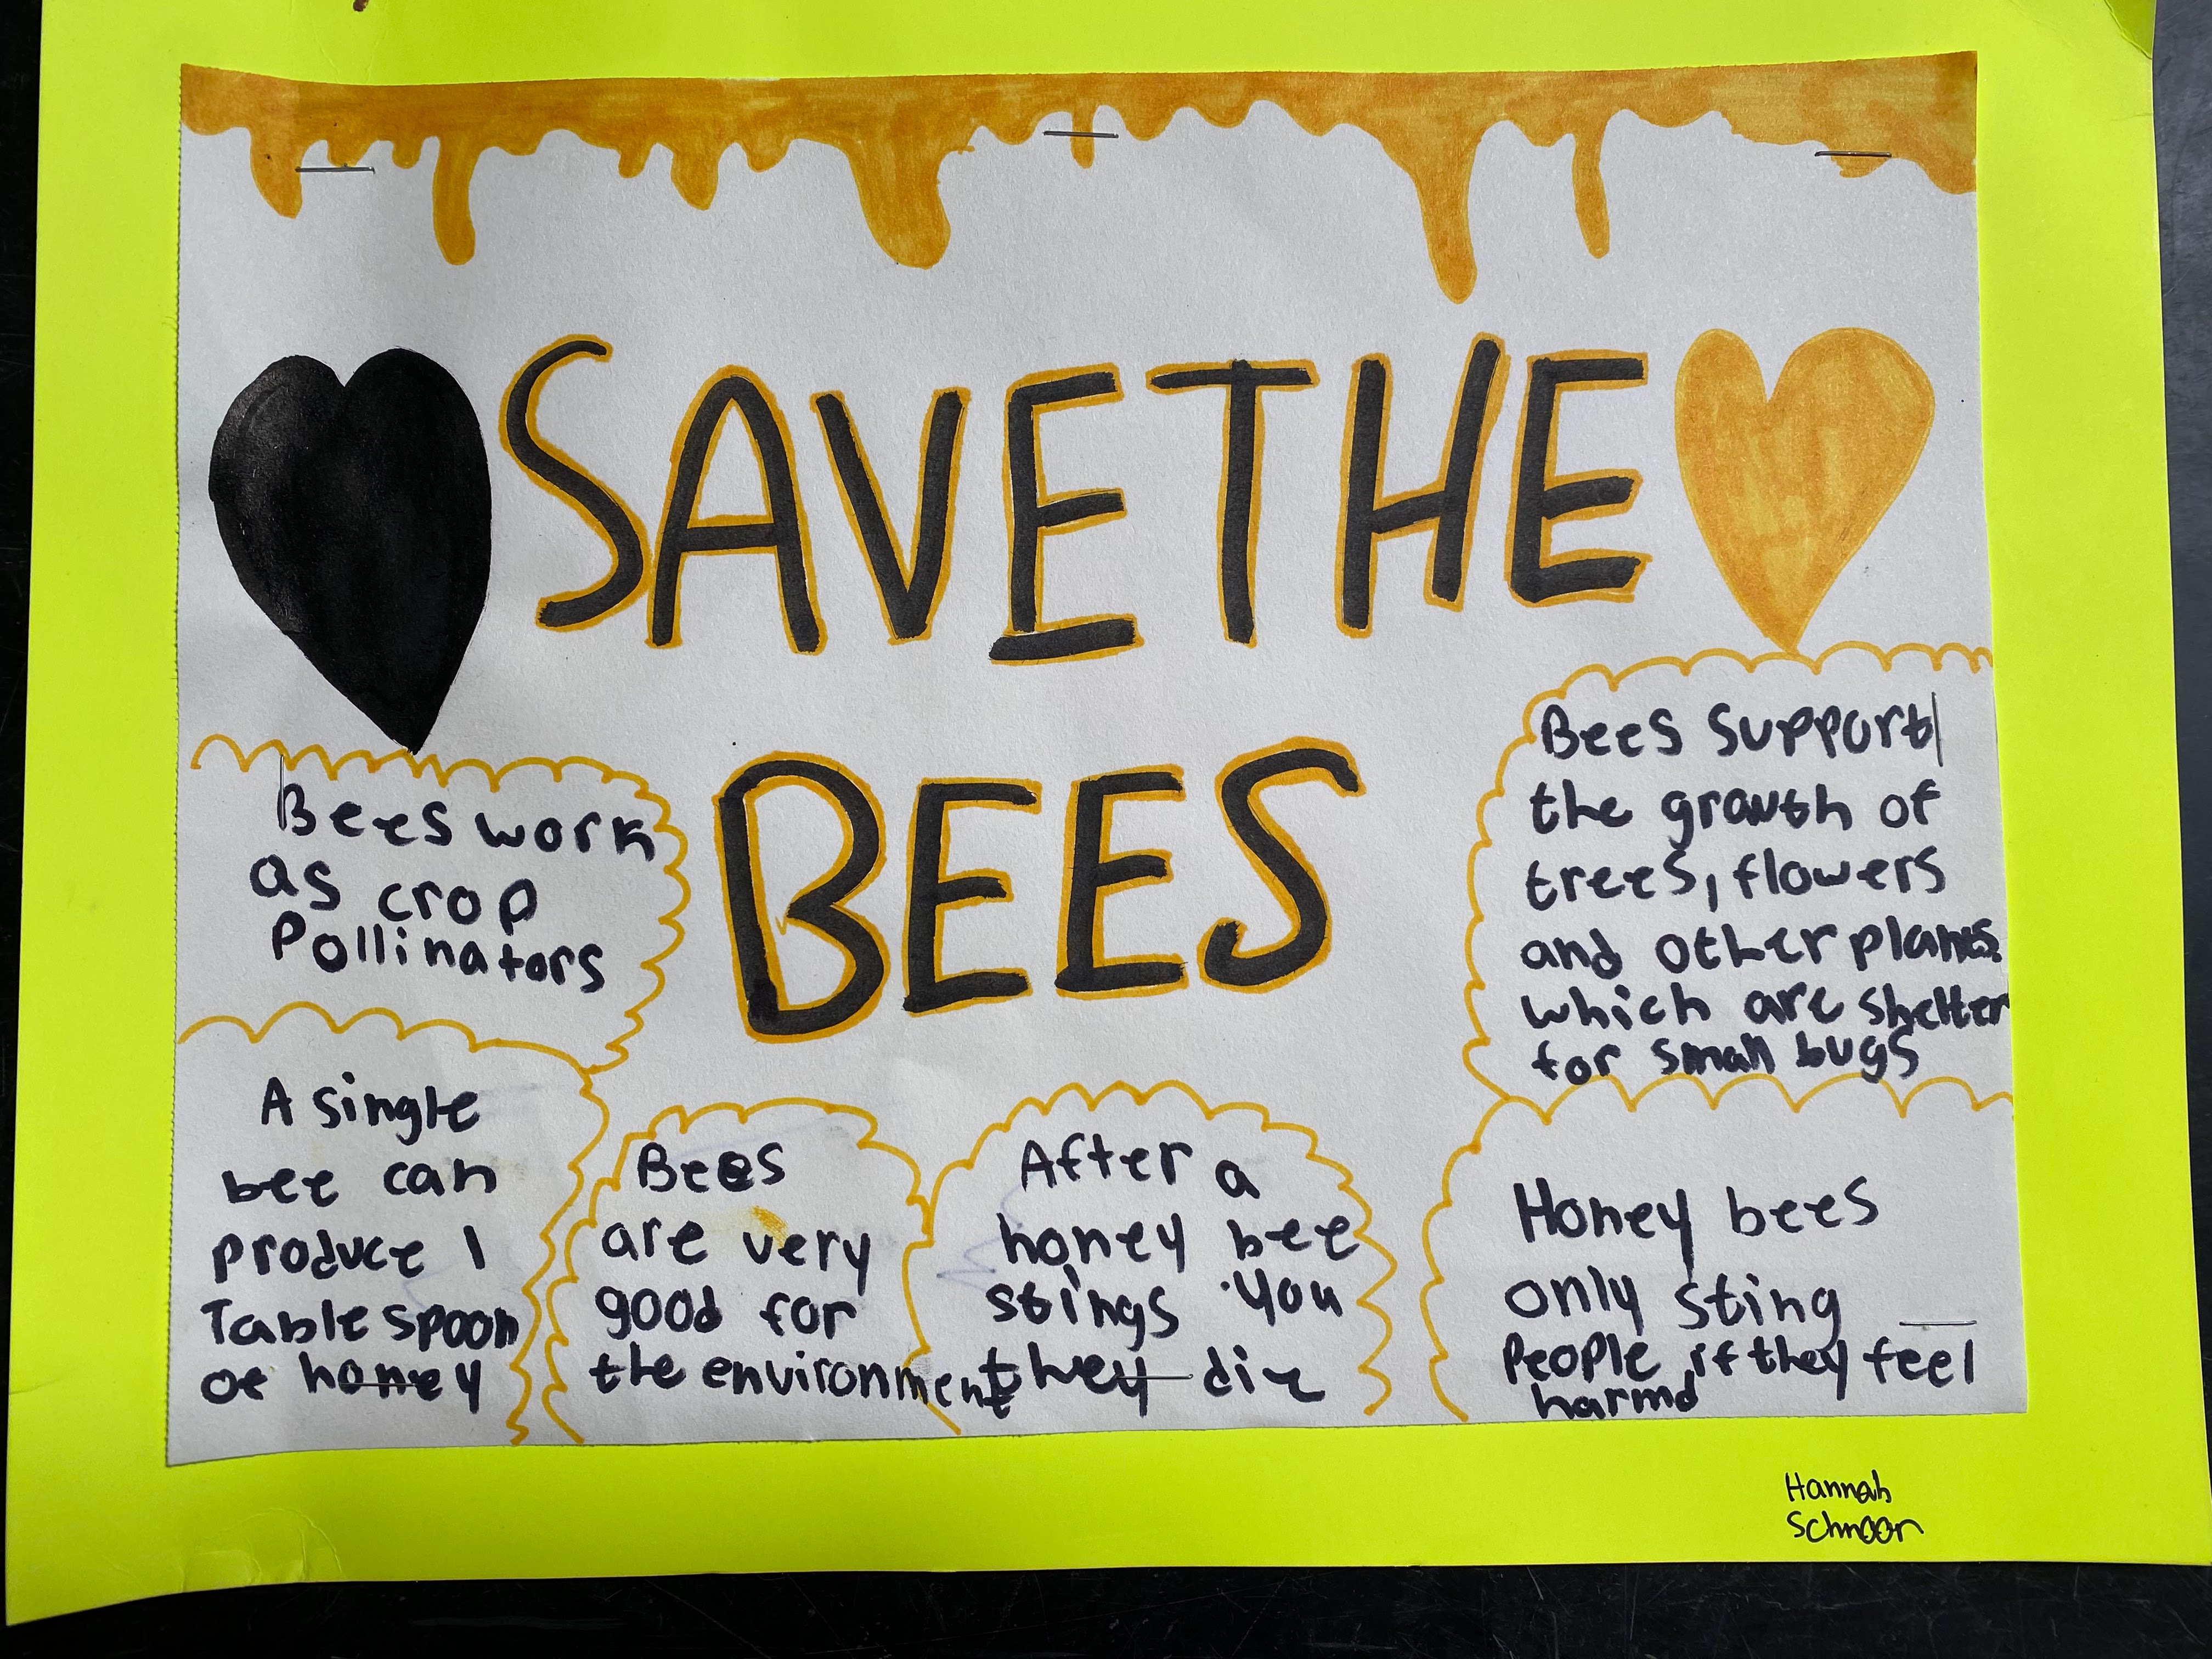 SAVE THE
BEES
Bees work
as crop
Pollinators
A single
bee can
produce 1
Tablespoon
of honey
Bees
are very
good for
the environment
After a
honey bee
stings you
they die
Bees support
the growth of
trees, flowers
and other plants.
which are shelter
for small bugs
Honey bees
only sting
People if they feel
harmd
Hannah
Schnoor